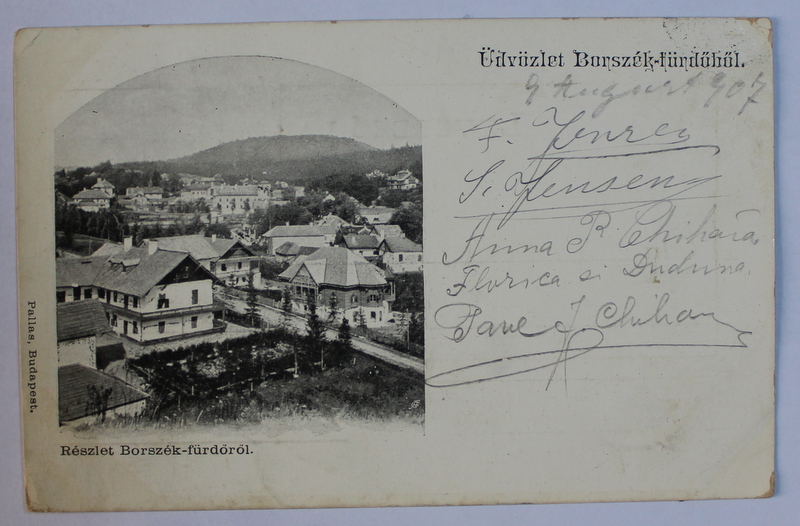 Üdvözlet Borszék-fürdőből.
9 August 907
S. Jensen
Anna P. Chihaia
Florica si Duduna
J Chihai
Részlet Borszék-fürdőről.
Pallas, Budapest.